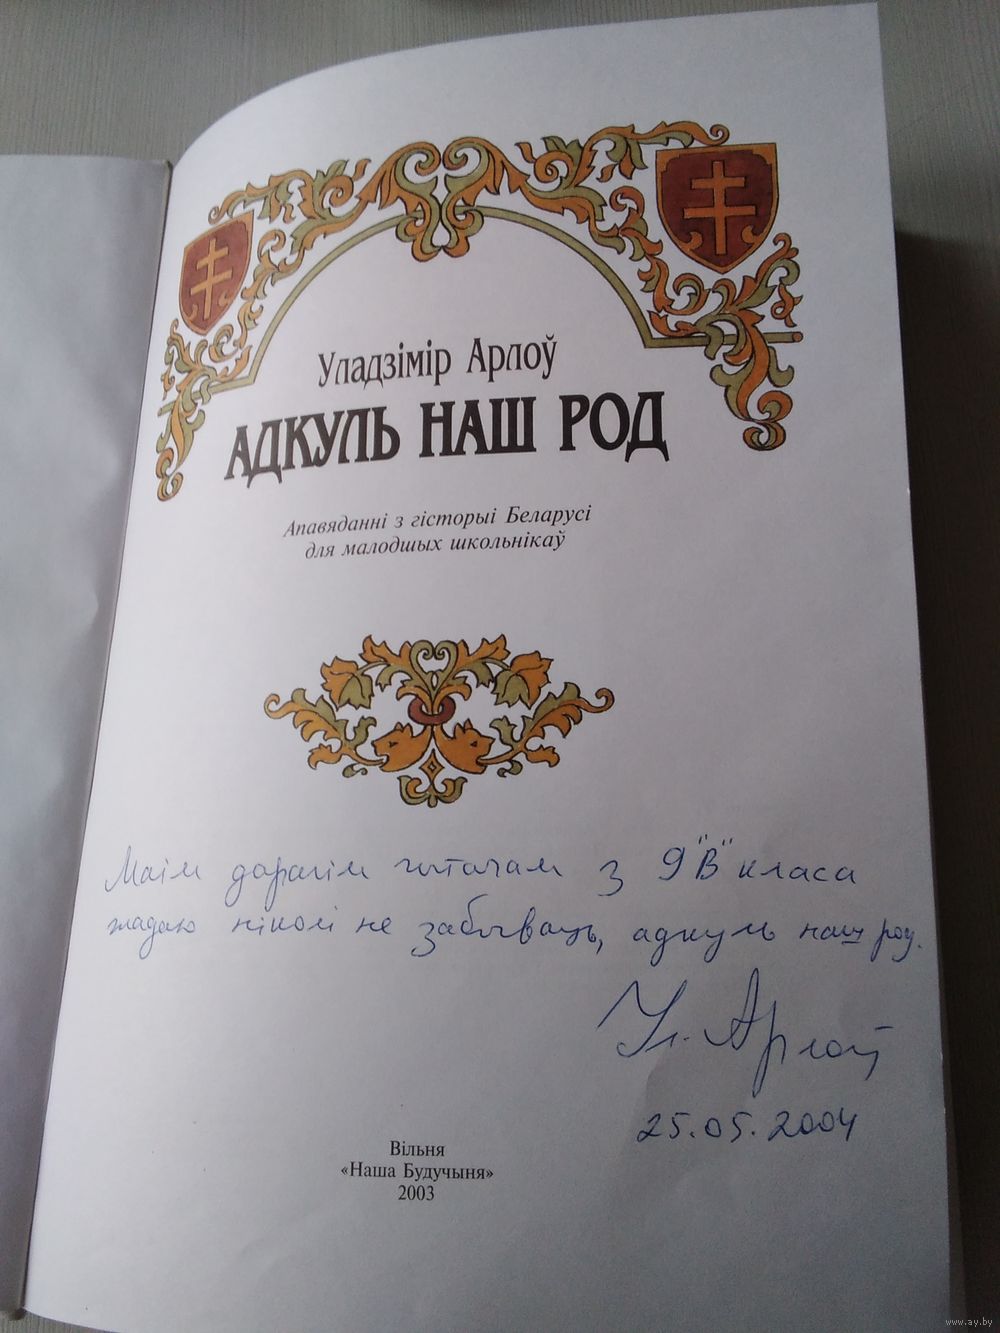 Уладзімір Арлоў
АДКУЛЬ НАШ РОД
Апавяданні з гісторыі Беларусі
для малодшых школьнікаў
Маім дарагім чытачам з 9"В" класа
жадаю ніколі не забываць, адкуль наш род.
Ул. Арлоў
25.05.2004
Вільня
«Наша Будучыня»
2003
www.ay.by